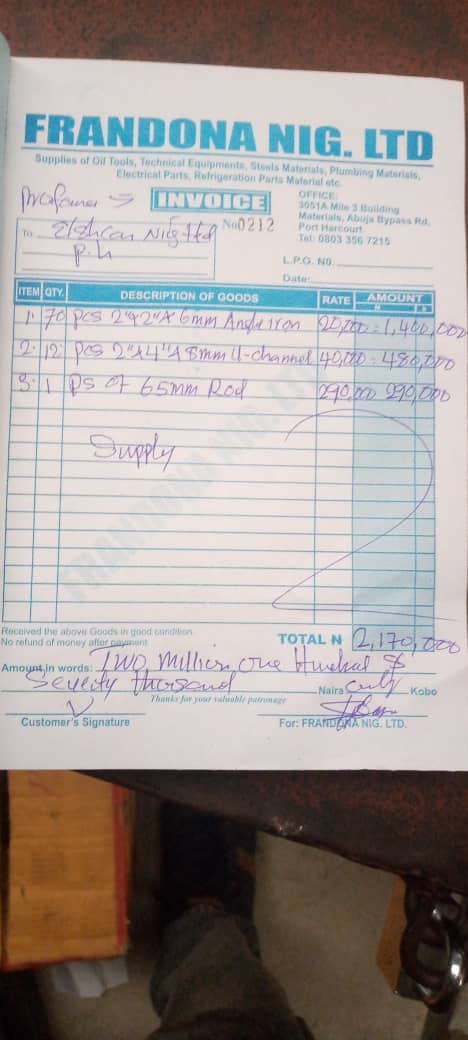 FRANDONA NIG. LTD
Supplies of Oil Tools, Technical Equipments, Steels Materials, Plumbing Materials,
Electrical Parts, Refrigeration Parts Material etc.
INVOICE
No0212
OFFICE:
3051A Mile 3 Building
Materials, Abuja Bypass Rd,
Port Harcourt
Tel: 0803 356 7215
To Nig Ltd
P.H
L.P.O. N0.
Date:
ITEM QTY. DESCRIPTION OF GOODS RATE AMOUNT
N K
1. 70 pcs 2"x2"x 6mm Angle iron 20,000 = 1,400,000
2. 12 pcs 2"x4"x 8mm U-channel 40,000 = 480,000
3. 1 ps of 65mm Rod 290,000 290,000
Supply
FRANDONA NIG. LTD
Received the above Goods in good condition.
No refund of money after payment
TOTAL N 2,170,000
Amount in words: Two million, one Hundred &
Seventy thousand Naira only Kobo
Thanks for your valuable patronage
Customer's Signature For: FRANDONA NIG. LTD.